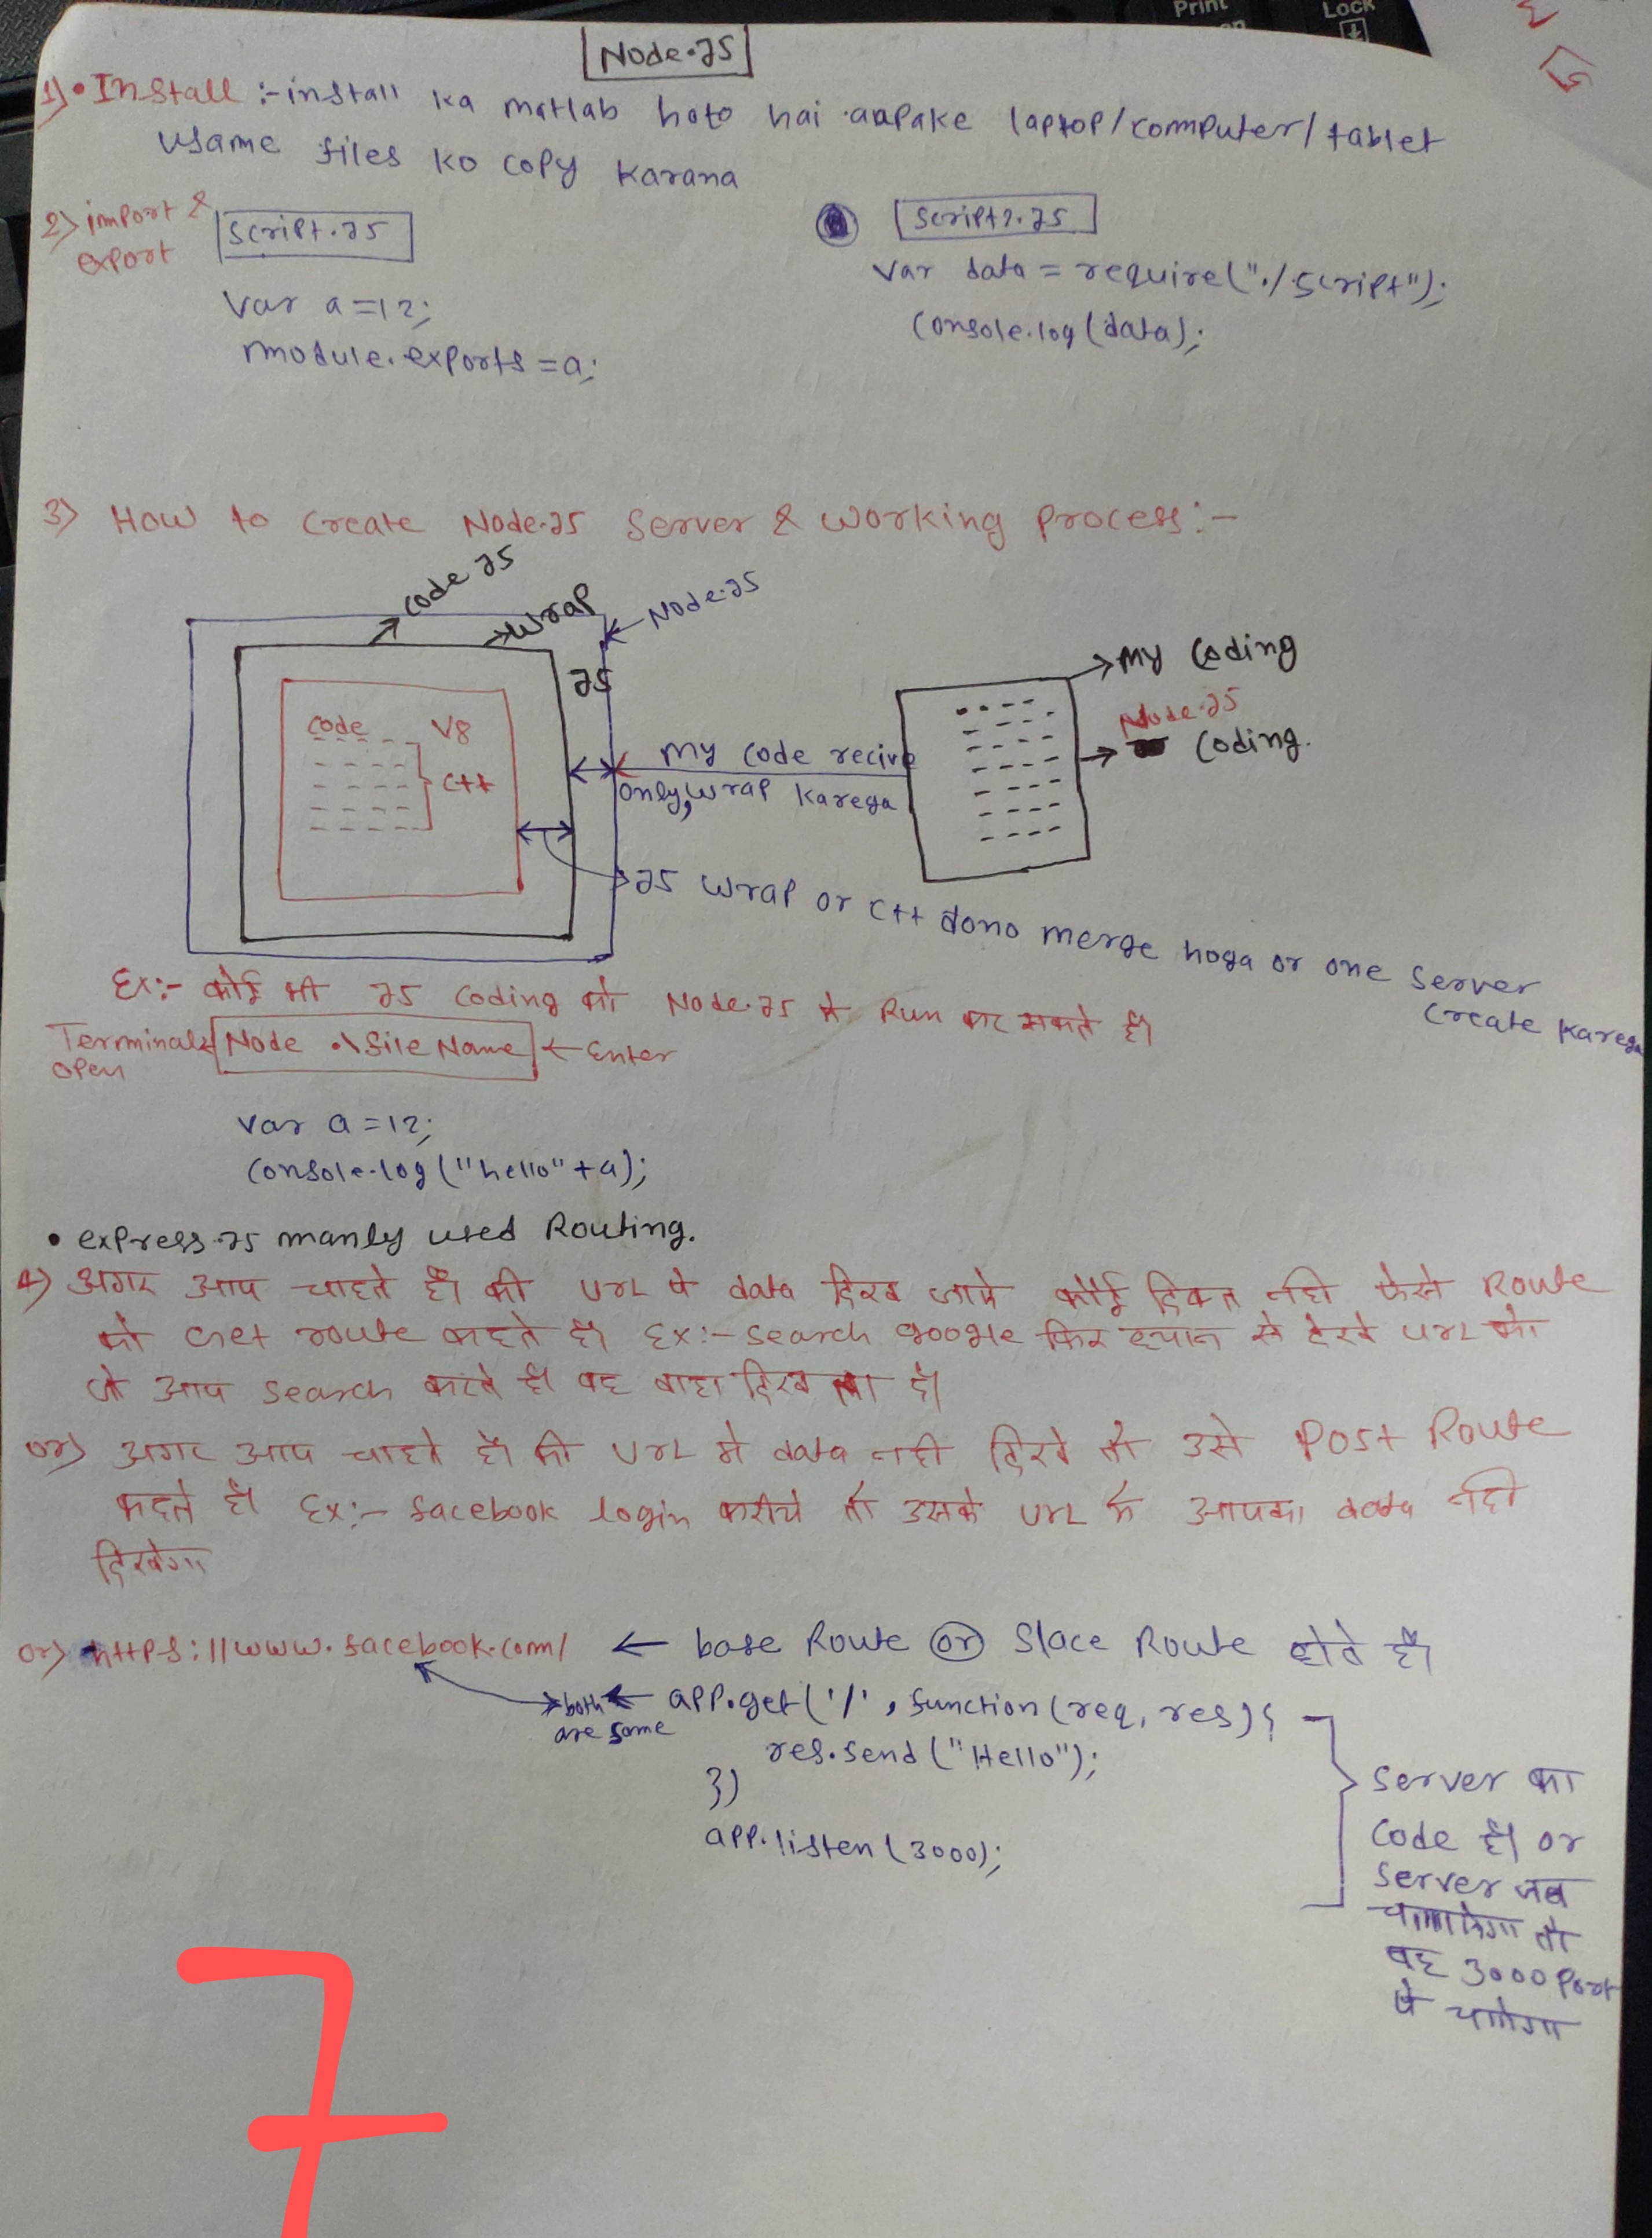 Print
Lock
Node.JS
1) • Install :- install ka matlab hoto hai aapake laptop/commputer/tablet
usame files ko copy karana
2) import &
export
Script.JS
var a=12;
module.exports=a;
Script2.JS
var data = require("./script");
console.log(data);
3) How to create Node.JS Server & working process:-
code JS
wrap
Node.JS
JS
code V8
C++
My code recive
only, wrap karega
My Coding
Node.JS
Coding.
JS wrap or C++ dono merge hoga or one server
create karega
Ex:- कोई भी JS Coding को Node.JS से Run कर सकते है।
Terminal
open
Node .\file Name ← Enter
var a=12;
console.log("hello"+a);
• express.JS manly used Routing.
4) अगर आप चाहते है। की url पे data दिख जाये कोई दिकत नही ऐसे Route
को Get route कहते है। Ex:- search google फिर ध्यान से देखे url को
जो आप search करते है। वह वाहा दिख है।
or) अगर आप चाहते है की url मे data नही दिखे तो उसे Post Route
कहते है। Ex:- facebook login करीये तो उसके url मे आपका data नही
दिखेगा
or) https://www.facebook.com/ ← base Route or Slace Route होते है।
both
are same
← app.get('/', function(req, res){
res.send("Hello");
})
app.listen(3000);
server का
code है। or
server जब
चलायेगा तो
वह 3000 Port
पे चलेगा
7